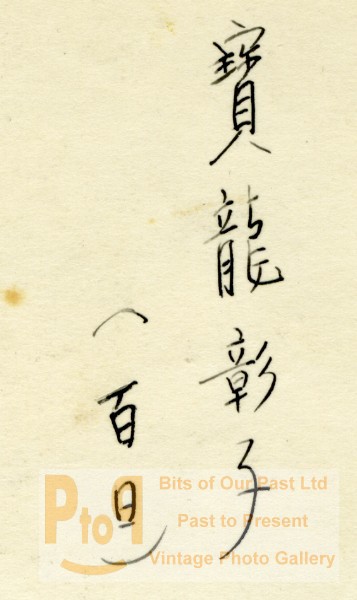 寳龍彰子
(百日)
PtoP
Bits of Our Past Ltd
Past to Present
Vintage Photo Gallery